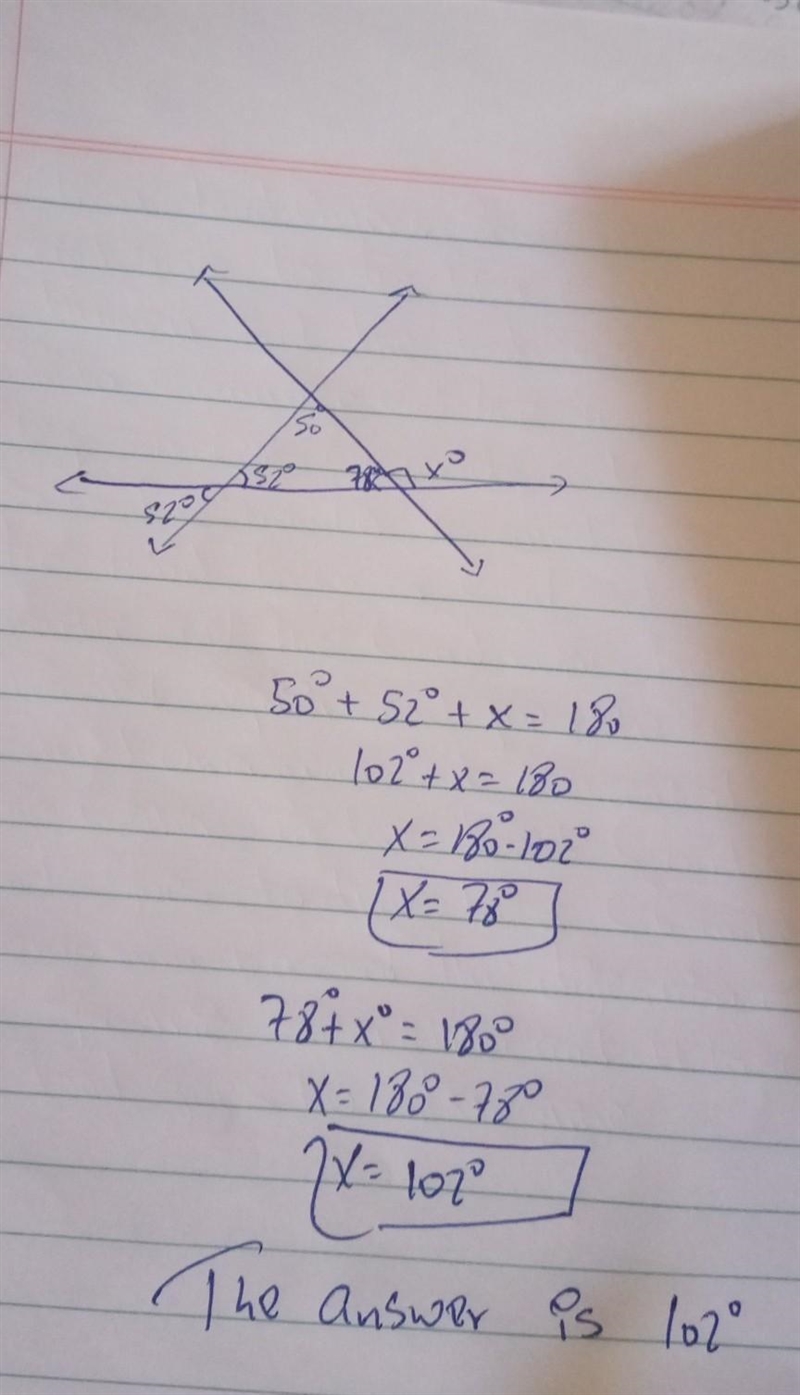 50°
52° 78° x°
52°
50° + 52° + x = 180
102° + x = 180
x = 180° - 102°
x = 78°
78° + x° = 180°
x = 180° - 78°
x = 102°
The answer is 102°